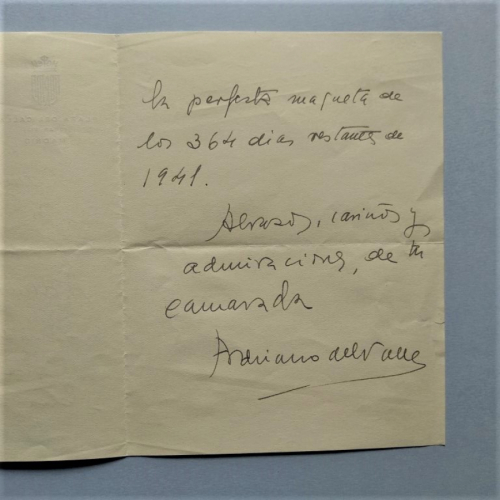 la perfecta maqueta de
los 364 dias restantes de
1941.
Abrazos, cariños y
admiraciones, de tu
camarada
Adriano del Valle